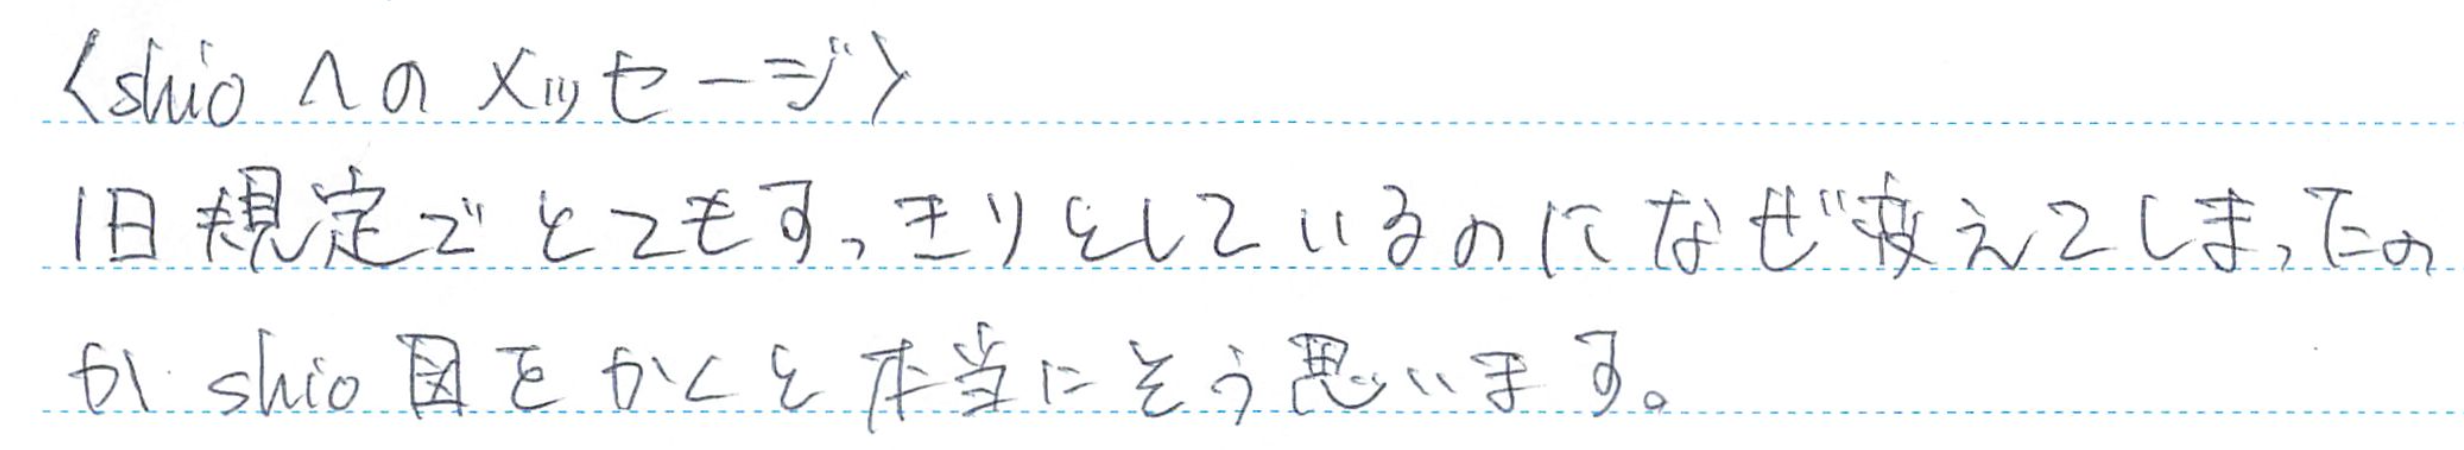 〈shioへのメッセージ〉
旧規定でとてもすっきりとしているのになぜ変えてしまったの
か shio図をかくと本当にそう思います。